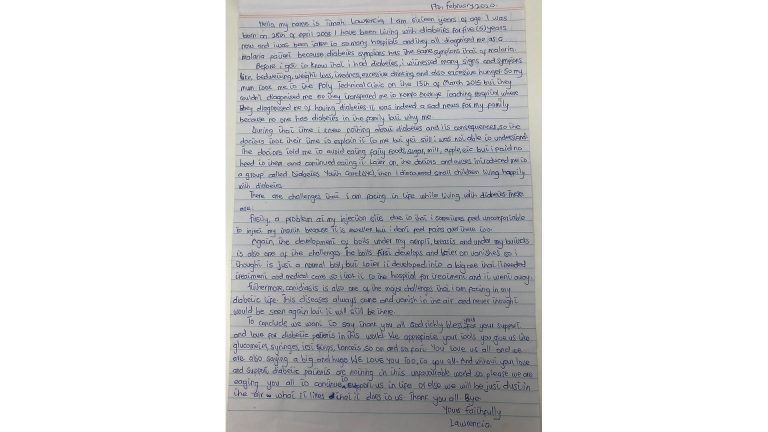 17th, February, 2020.
Hello, my name is Timah Lawrencia. I am sixteen years of age. I was
born on 28th of April 2003. I have been living with diabetes for five (5) years
now and i was been taken to so many hospitals and they all diagnosed me as a
malaria patient because diabetes symptoms has the same symptoms that of malaria.
Before i got to know that i had diabetes, i witnessed many signs and symptoms
like, bedwetting, weight loss, tiredness, excessive drinking and also excessive hunger. So my
mum took me to the Poly Technical Clinic on the 15th of March 2015 but they
couldn't diagnosed me so they transfered me to Komfo Anokye Teaching Hospital where
they diagnosed me of having diabetes. It was indeed a sad news for my family
because no one has diabetes in the family but why me.
During that time i knew nothing about diabetes and its consequences, so the
doctors took their time to explain it to me but yet still i was not able to understand.
The doctors told me to avoid eating fatty foods, sugar, milk, apple, etc but i paid no
heed to them and continued eating it. Later on, the doctors and nurses introduced me to
a group called Diabetes Youth Care (DYC), then I discovered small children living happily
with diabetes.
There are challenges that i am facing in life while living with diabetes. These
are:
Firstly, a problem at my injection site, due to that i sometimes feel uncomfortable
to inject my insulin because it is swollen but i don't feel pains over there too.
Again, the development of boils under my armpit, breasts and under my buttocks
is also one of the challenges. The boils first develops and later on vanishes so i
thought is just a normal boil, but later it developed into a big one that it needed
treatment and medical care so i took it to the hospital for treatment and it went away.
Furthermore, candidiasis is also one of the major challenges that i am facing in my
diabetic life. This diseases always come and vanish in the air and never thought i
would be seen again but it will still be there.
To conclude we want to say thank you all. God richly bless you for your support
and love for diabetic patients in this world. We appreciate your tools you give us like
glucometer, syringes, test strips, lancets so on and so forth. You love us all and we
are also saying a big and huge WE LOVE YOU TOO, to you all. And without your love
and support, diabetic patients are nothing in this world so please we are
you all to continue to support us in life or else we will be just dust in
the air what it likes that it does to us. Thank you all. Bye.
Yours faithfully
Lawrencia.